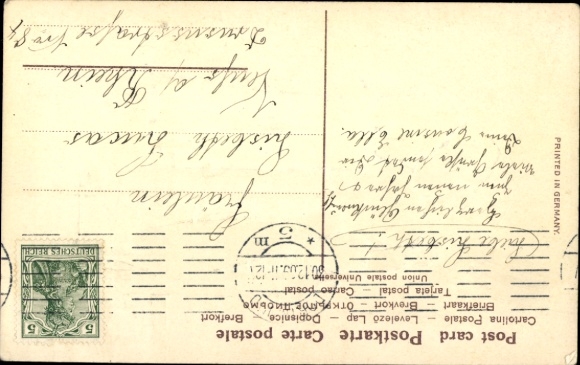 Post card Postkarte Carte postale
Cartolina Postale – Levelező Lap – Dopisnice – Brefkort
Briefkaart – Brevkort – ОТКРЫТОЕ ПИСЬМО
Tarjeta postal – Cartao postal
Union postale Universelle
Liebe Lisbeth!
Herzlichsten Glückwunsch
zum neuen Jahre u.
viele Grüße
Deine Cousine Ella.
Fräulein
Lisbeth Lucas
Neuss a/ Rhein
Drususstrasse No 84
PRINTED IN GERMANY.
DEUTSCHES REICH
5 5
5
m